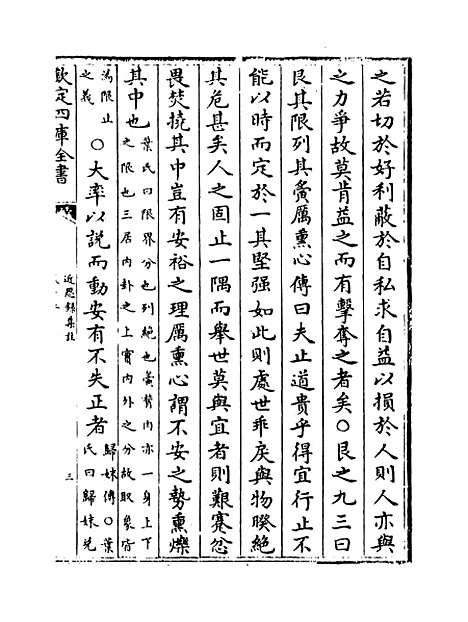 之若切於好利蔽於自私求自益以損於人則人亦與
之力爭故莫肯益之而有擊奪之者矣○艮之九三曰
艮其限列其夤厲熏心傳曰夫止道貴乎得宜行止不
能以時而定於一其堅强如此則處世乖戾與物睽絶
其危甚矣人之固止一隅而舉世莫與宜者則艱蹇忿
畏焚撓其中豈有安裕之理厲熏心謂不安之勢熏爍
其中也葉氏曰限界分也列絶也夤膂肉亦一身上下
之限也三居内卦之上實内外之分故取象皆
為限止
之義○大率以説而動安有不失正者歸妹傳○葉
氏曰歸妹兌
欽定四庫全書
近思録集註
三